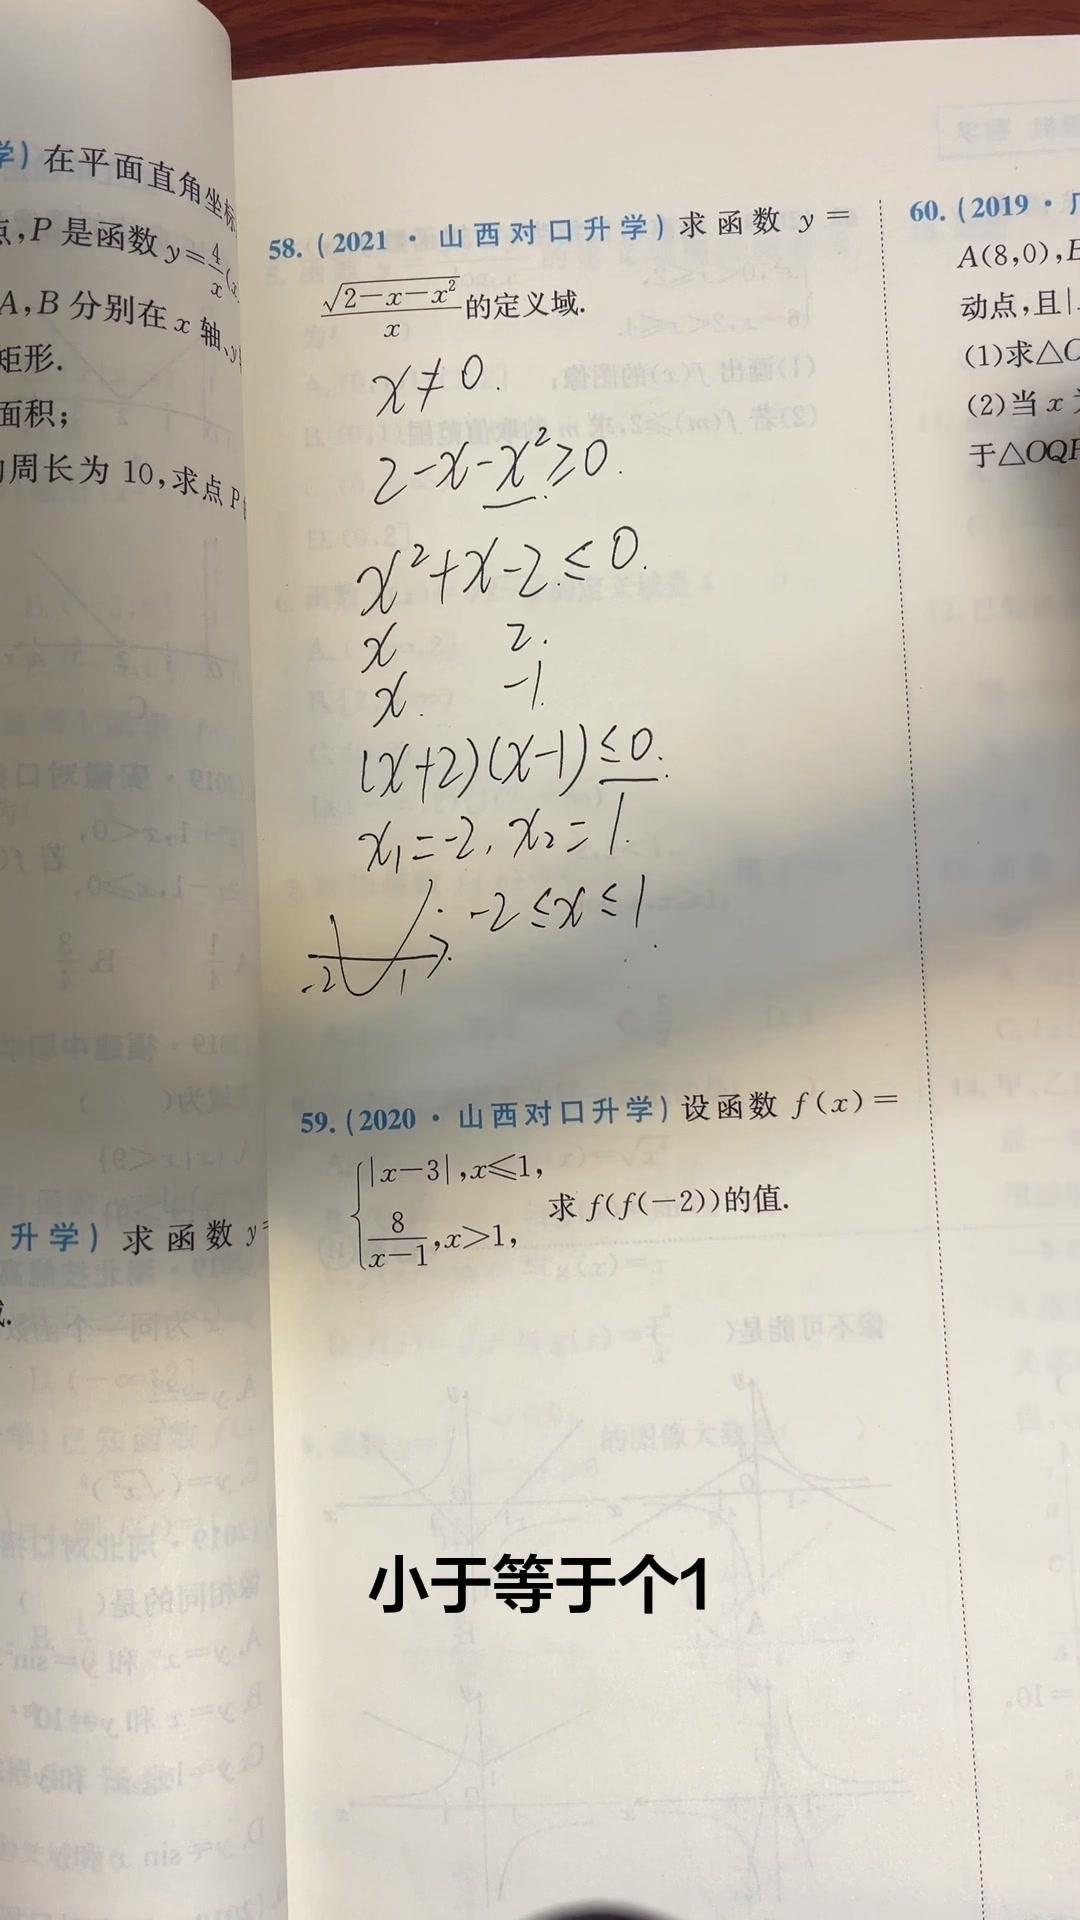 学)在平面直角坐标
点,P是函数y=4/x(x
A,B分别在x轴、y
矩形.
面积;
的周长为10,求点P
升学)求函数y=
58.(2021·山西对口升学)求函数y=
√(2-x-x²)/x的定义域.
x≠0.
2-x-x²≥0.
x²+x-2≤0.
x 2.
x. -1
(x+2)(x-1)≤0.
x₁=-2, x₂=1.
-2≤x≤1
-2 1
59.(2020·山西对口升学)设函数f(x)=
{|x-3|,x≤1,
8/(x-1),x>1,
求f(f(-2))的值.
60.(2019·
A(8,0),
动点,且|
(1)求△
(2)当x
于△OQ
小于等于个1